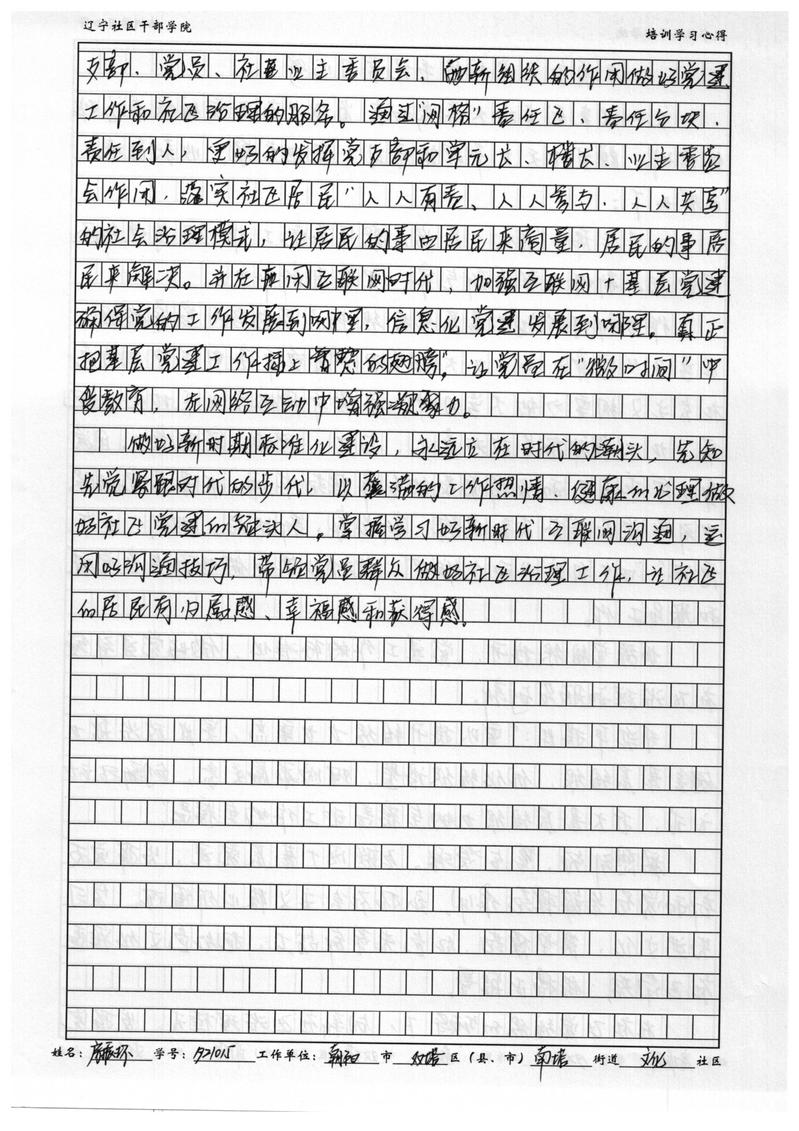 辽宁社区干部学院
培训学习心得
支部、党员、社区业主委员会、创新组织的作用做好党建
工作和社区治理的服务。通过“网格”责任区、责任分块、
责任到人，更好的发挥党支部和单元长、楼长、业主委员
会作用，落实社区居民“人人有责、人人参与、人人共享”
的社会治理模式，让居民的事由居民来商量，居民的事居
民来解决。并在互联网时代，加强互联网+基层党建
确保党的工作发展到哪里，信息化党建发展到哪里。真正
把基层党建工作插上“智慧的翅膀”，让党员在“微时间”中
受教育，在网络互动中增强凝聚力。
做好新时期标准化建设，永远立在时代的潮头，先知
先觉紧跟时代的步伐，以饱满的工作热情、健康的心理做
好社区党建的领头人。掌握学习好新时代互联网沟通，运
用好沟通技巧，带领党员群众做好社区治理工作，让社区
的居民有归属感、幸福感和获得感。
姓名： 学号： 工作单位：朝阳 市 双塔 区（县、市） 南塔 街道 文化 社区